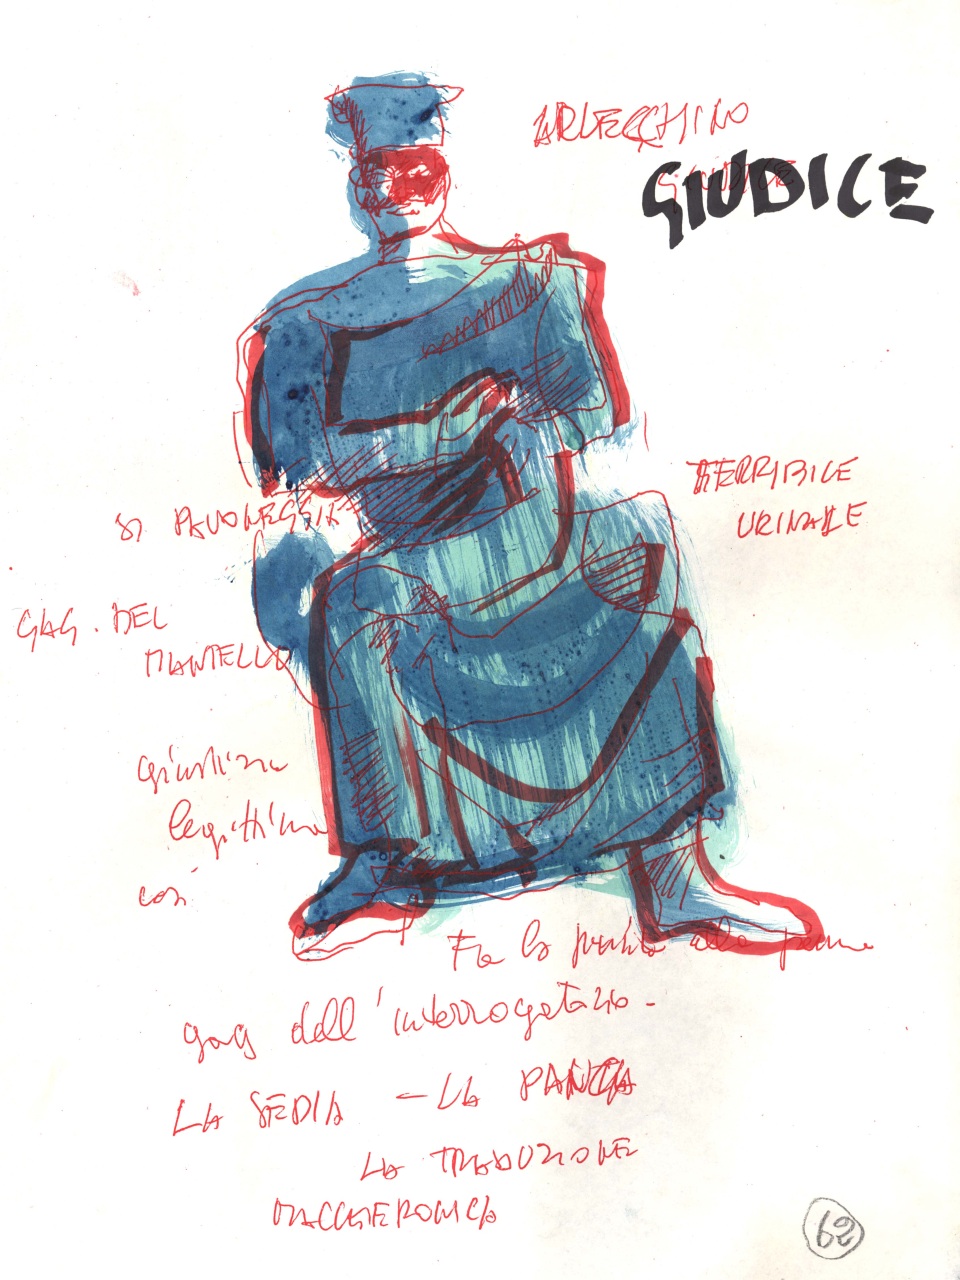 ARLECCHINO
GIUDICE
GIUDICE
TERRIBILE
URINALE
SI PAVONEGGIA
GAG. DEL
MANTELLO
giustizia
legittima
così
Fa la punta alla penna
gag dell'interrogatorio -
LA SEDIA - LA PANCA
LA TRADUZIONE
MACCHERONICA
62